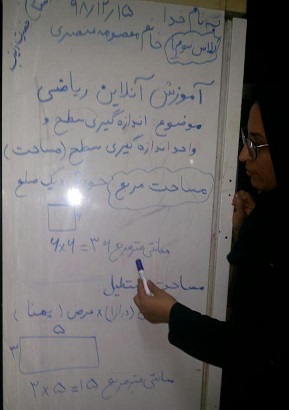 به نام خدا ۹۸/۱۲/۱۵
کلاس سوم خانم معصومه منصوری
آموزش آنلاین ریاضی
موضوع: اندازه گیری سطح و
واحد اندازه گیری سطح (مساحت)
مساحت مربع: یک ضلع
۶×۶=۳۶ سانتی متر مربع
مساحت مستطیل
(درازا) × عرض (پهنا)
۵
۳
۳×۵=۱۵ سانتی متر مربع